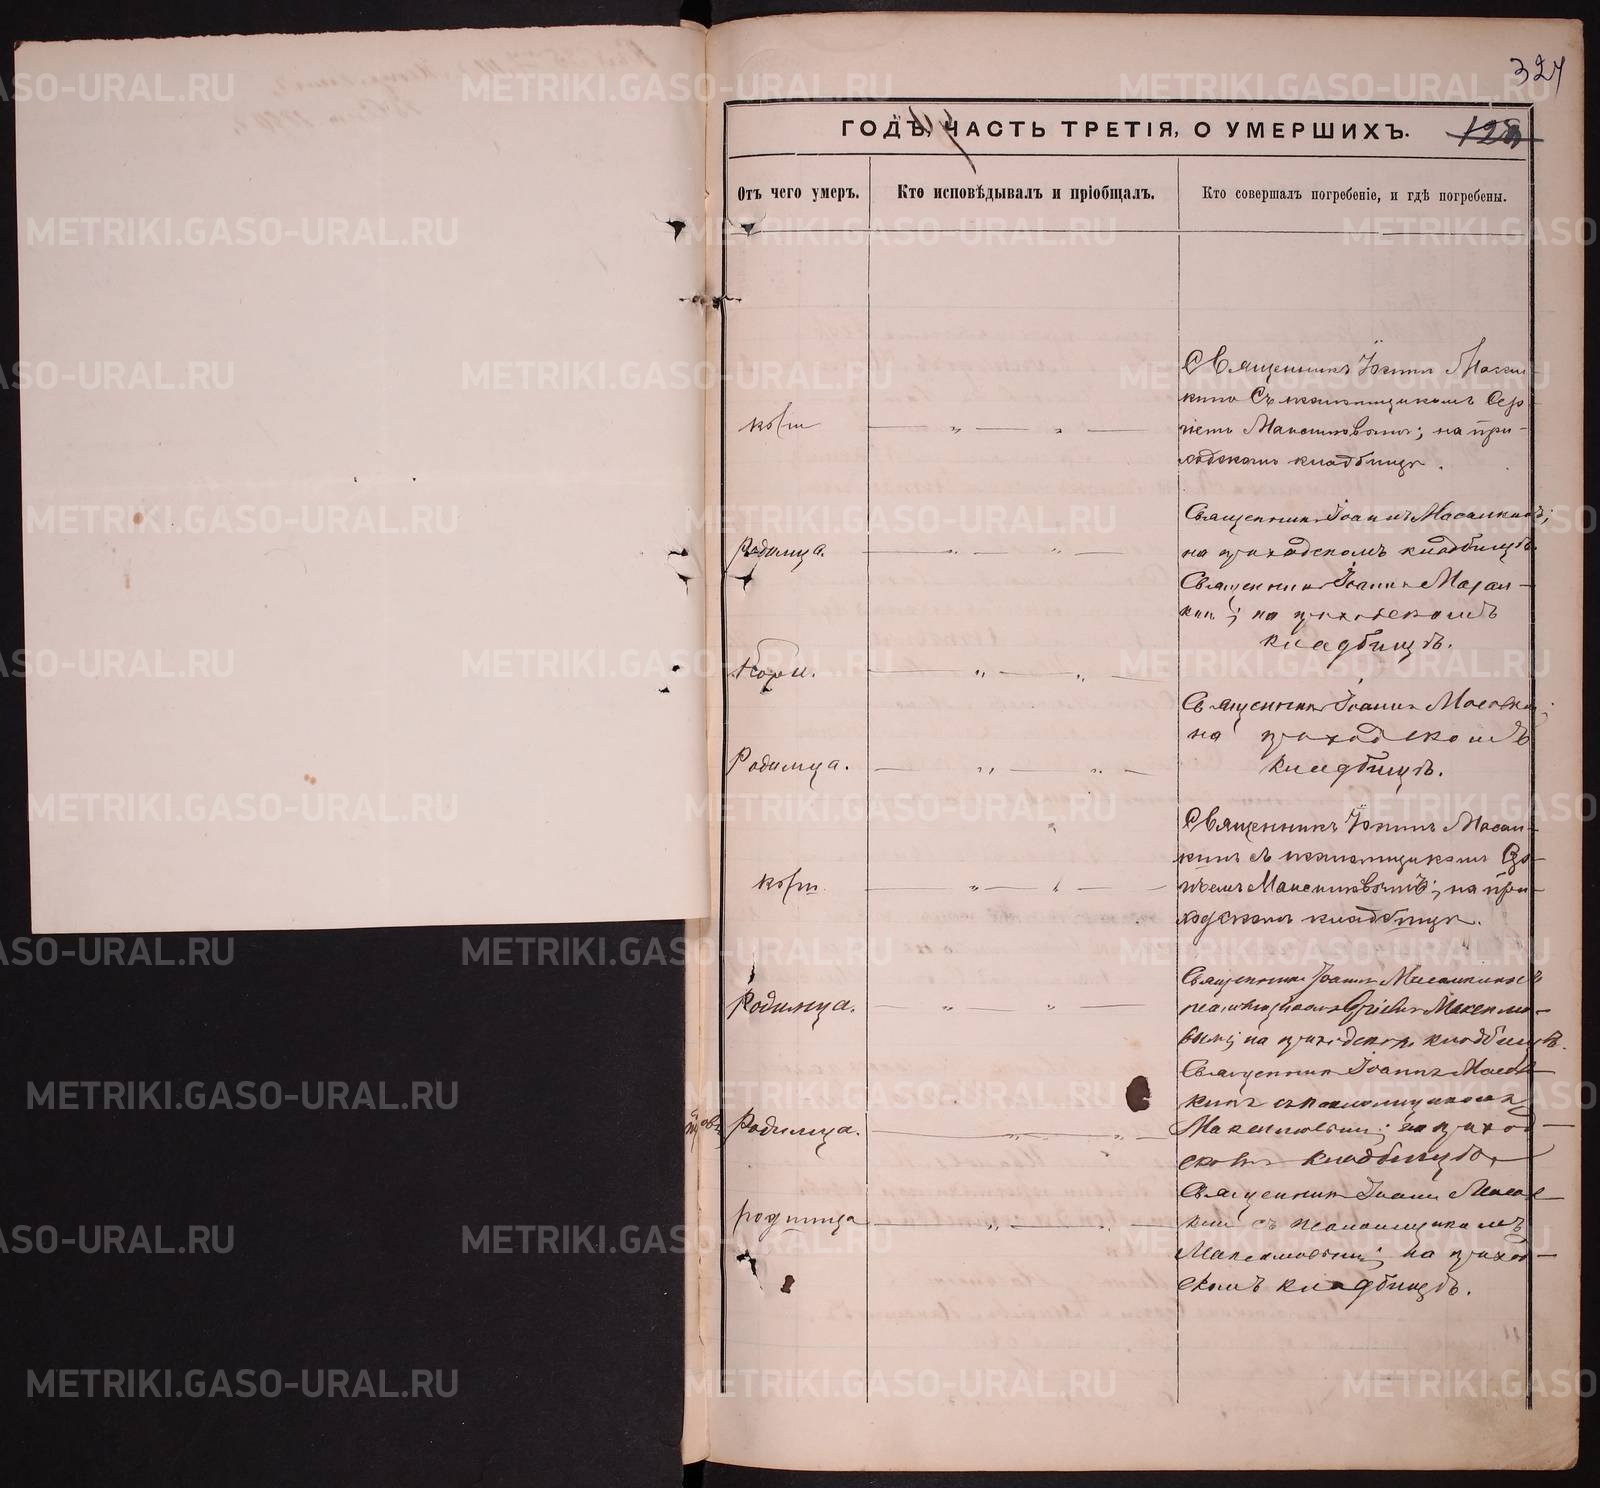 324
ГОДЪ, ЧАСТЬ ТРЕТІЯ, О УМЕРШИХЪ.
128
Отъ чего умеръ.
Кто исповѣдывалъ и пріобщалъ.
Кто совершалъ погребеніе, и гдѣ погребены.
Священникъ Іоаннъ Масал-
кинъ съ псаломщикомъ Сер-
гіемъ Максимовымъ; на при-
ходскомъ кладбищѣ.
Родимца.
Священникъ Іоаннъ Масалкинъ;
на приходскомъ кладбищѣ.
Священникъ Іоаннъ Масал-
кинъ; на приходскомъ
кладбищѣ.
Кори.
Священникъ Іоаннъ Масалкинъ;
на приходскомъ
кладбищѣ.
Родимца.
Священникъ Іоаннъ Масал-
кинъ съ псаломщикомъ
Максимовымъ; на при-
ходскомъ кладбищѣ.
Родимца.
Священникъ Іоаннъ Масалкинъ съ
псаломщикомъ Максимо-
вымъ; на приходскомъ кладбищѣ.
Родимца.
Священникъ Іоаннъ Масал-
кинъ съ псаломщикомъ
Максимовымъ; на приход-
скомъ кладбищѣ.
родимца
Священникъ Іоаннъ Масал-
кинъ съ псаломщикомъ
Максимовымъ; на приход-
скомъ кладбищѣ.
METRIKI.GASO-URAL.RU